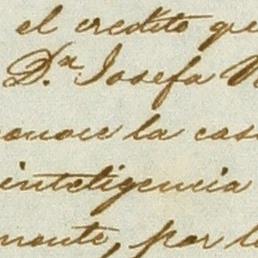 el credito que
D.ª Josefa
conoce la casa
inteligencia
mente, por l